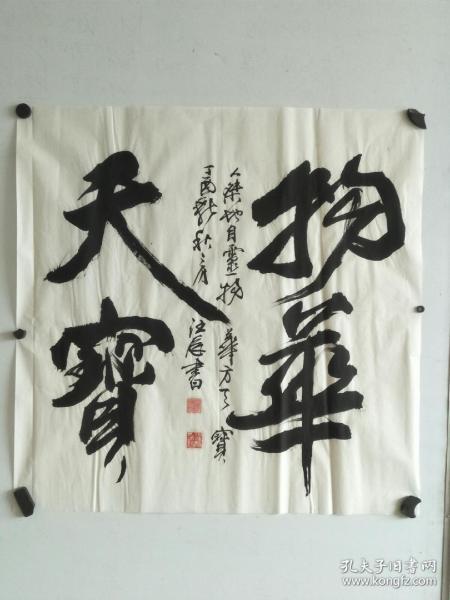 物華
天寶
人傑地自靈物華方天寶
丁酉新秋之月
汪辰書
孔夫子旧书网
www.kongfz.com